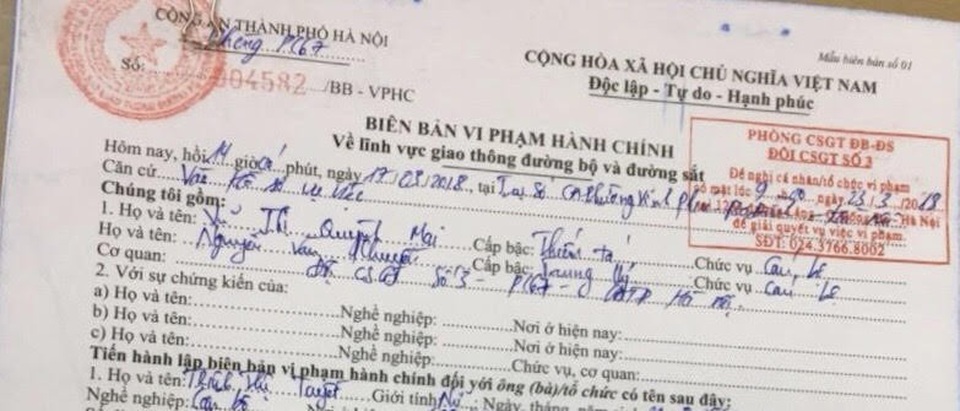 CÔNG AN THÀNH PHỐ HÀ NỘI
Phòng PC67
Số: 004582 /BB - VPHC
Mẫu biên bản số 01
CỘNG HÒA XÃ HỘI CHỦ NGHĨA VIỆT NAM
Độc lập - Tự do - Hạnh phúc
BIÊN BẢN VI PHẠM HÀNH CHÍNH
Về lĩnh vực giao thông đường bộ và đường sắt
PHÒNG CSGT ĐB-ĐS
ĐỘI CSGT SỐ 3
Đề nghị cá nhân/tổ chức vi phạm
có mặt lúc 9 giờ 00 ngày 23/3/2018
Hà Nội
để giải quyết vụ việc vi phạm.
SĐT: 024.3766.8002
Hôm nay, hồi 14 giờ phút, ngày 17/03/2018, tại Trụ sở CA phường Vĩnh Phúc
Căn cứ Vào hồ sơ vụ việc
Chúng tôi gồm:
1. Họ và tên: Vũ Thị Quỳnh Mai Cấp bậc: Thiếu tá, Chức vụ Cán bộ
Họ và tên: Nguyễn Văn Cấp bậc: Trung úy Chức vụ Cán bộ
Cơ quan: Đội CSGT Số 3 - PC67 - CATP Hà Nội
2. Với sự chứng kiến của:
a) Họ và tên: Nghề nghiệp: Nơi ở hiện nay:
b) Họ và tên: Nghề nghiệp: Nơi ở hiện nay:
c) Họ và tên: Nghề nghiệp: Chức vụ, cơ quan:
Tiến hành lập biên bản vi phạm hành chính đối với ông (bà)/tổ chức có tên sau đây:
1. Họ và tên: Giới tính Nữ Ngày, tháng, năm sinh
Nghề nghiệp: Cán bộ